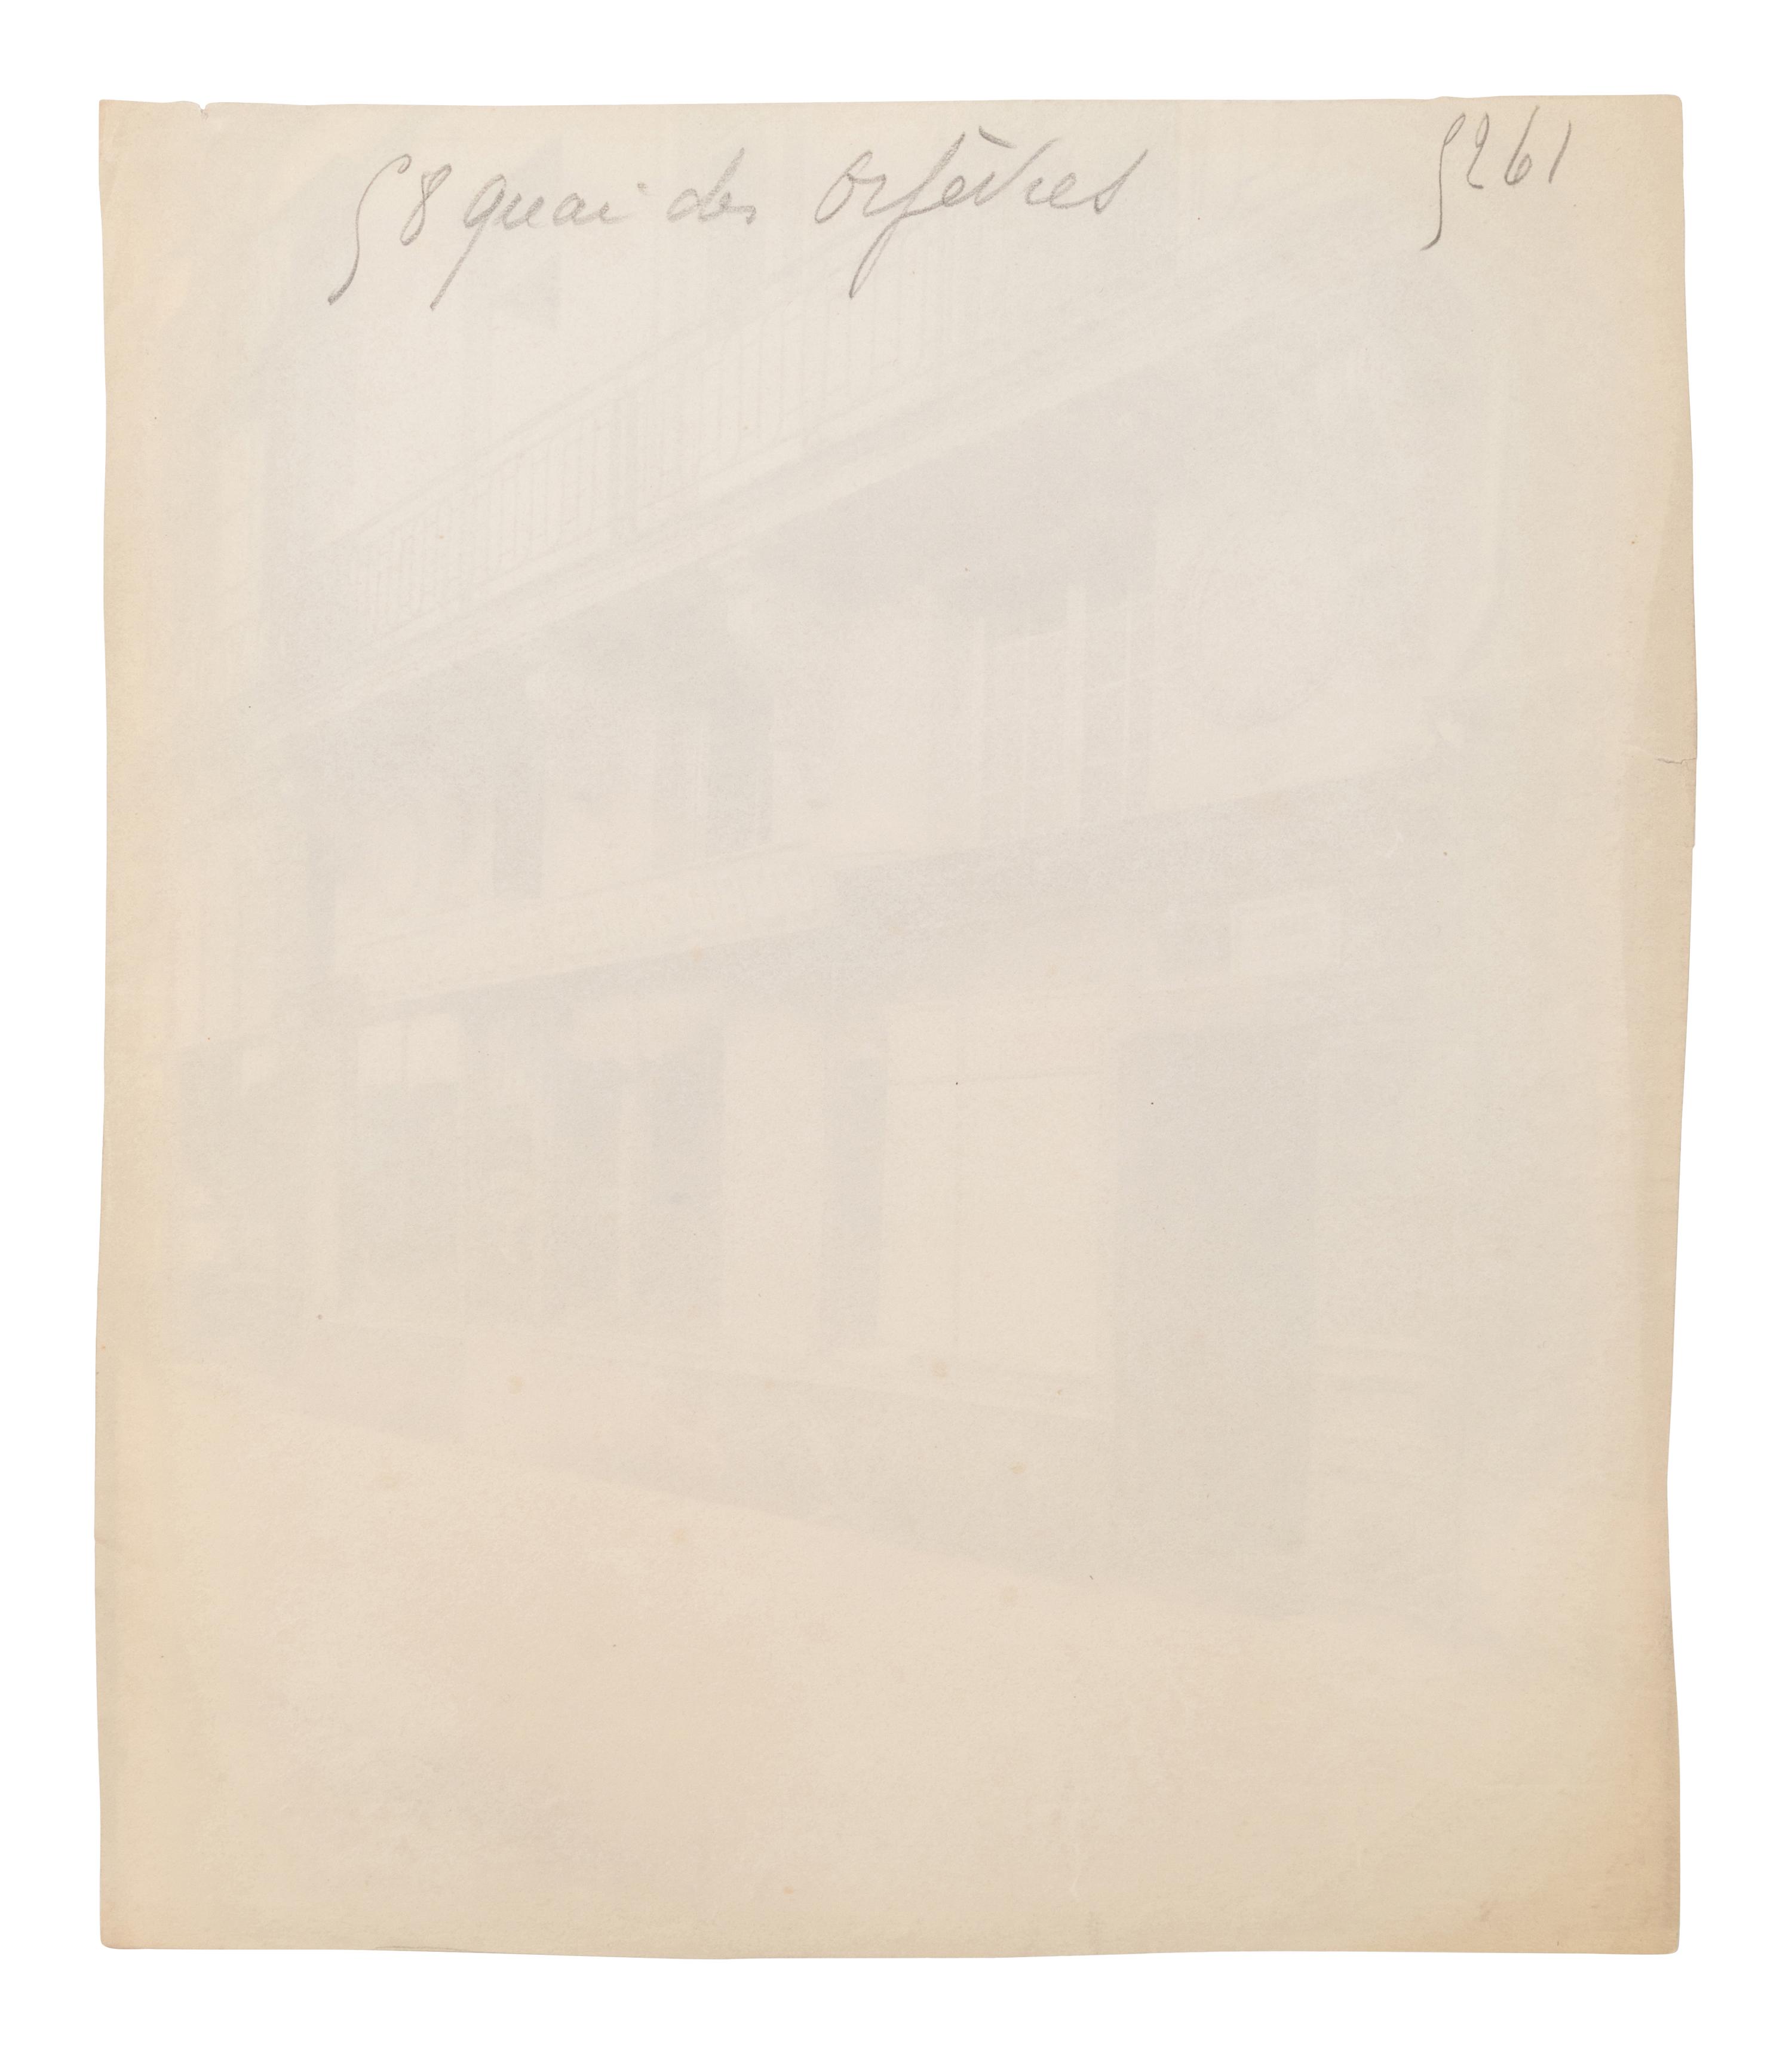 58 quai des Orfèvres
5261